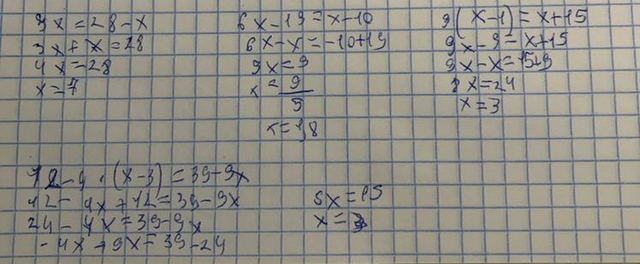 3x = 28 - x
3x + x = 28
4x = 28
x = 7
6x - 19 = x - 10
6x - x = -10 + 19
5x = 9
x = 9/5
x = 1,8
9(x - 1) = x + 15
9x - 9 = x + 15
9x - x = 15 + 9
8x = 24
x = 3
12 - 4 · (x - 3) = 39 - 9x
12 - 4x + 12 = 39 - 9x
24 - 4x = 39 - 9x
-4x + 9x = 39 - 24
5x = 15
x = 3